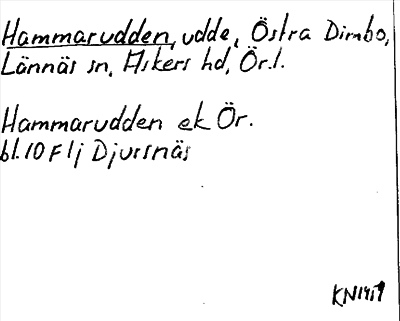 Hammarudden, udde, Östra Dimbo,
Lännäs sn, Askers hd, Ör.l.
Hammarudden ek Ör.
bl.10 F 1j Djursnäs